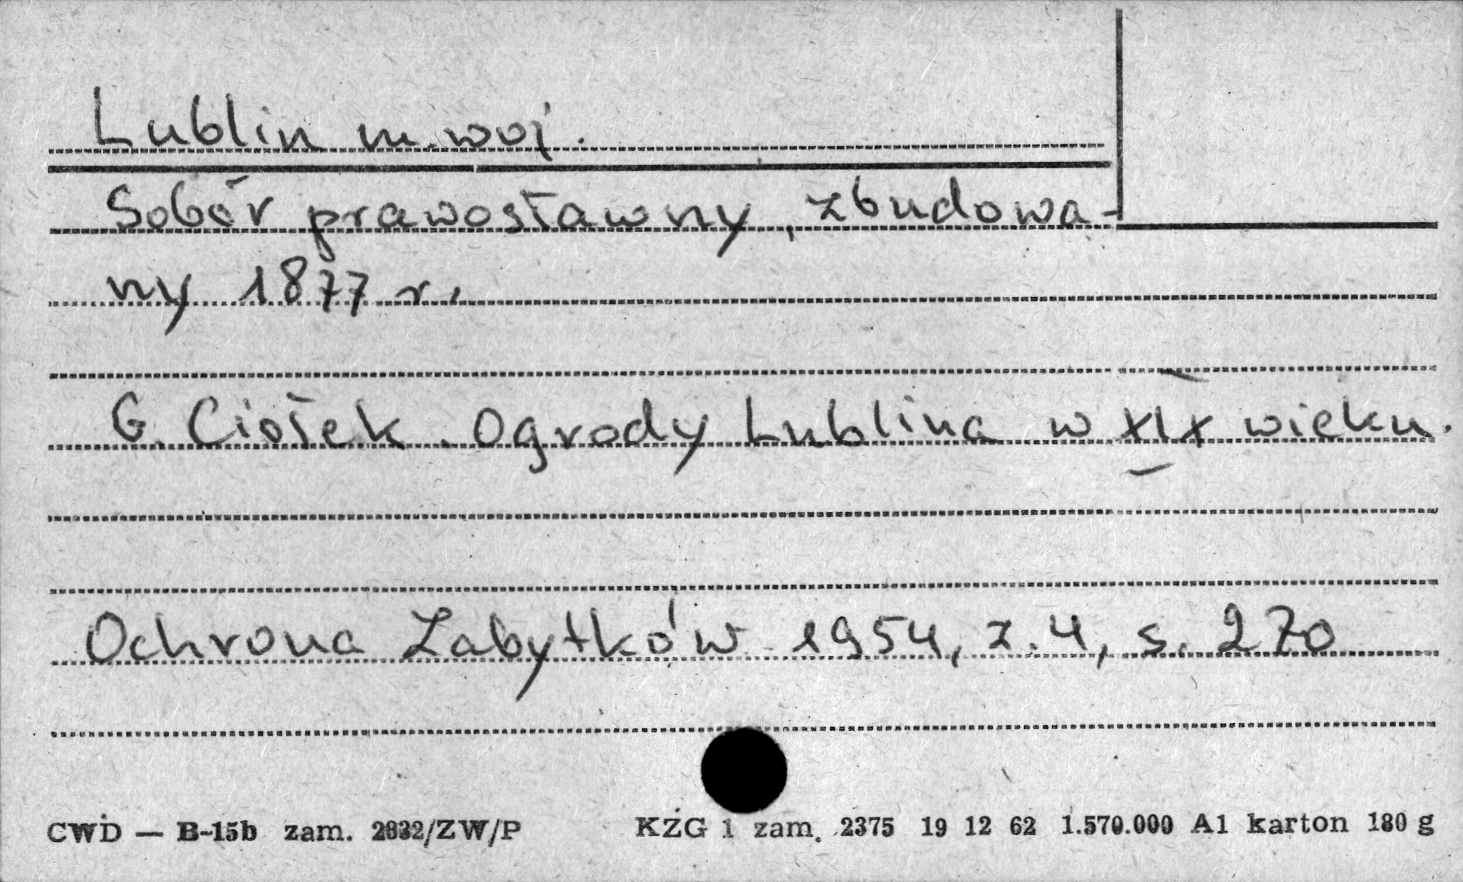 Lublin m. woj.
Sobór prawosławny, zbudowa-
ny 1877 r.
G. Ciołek. Ogrody Lublina w XIX wieku.
Ochrona Zabytków 1954, z. 4, s. 270
CWD — B-15b zam. 2832/ZW/P KZG 1 zam. 2375 19 12 62 1.570.000 A1 karton 180 g